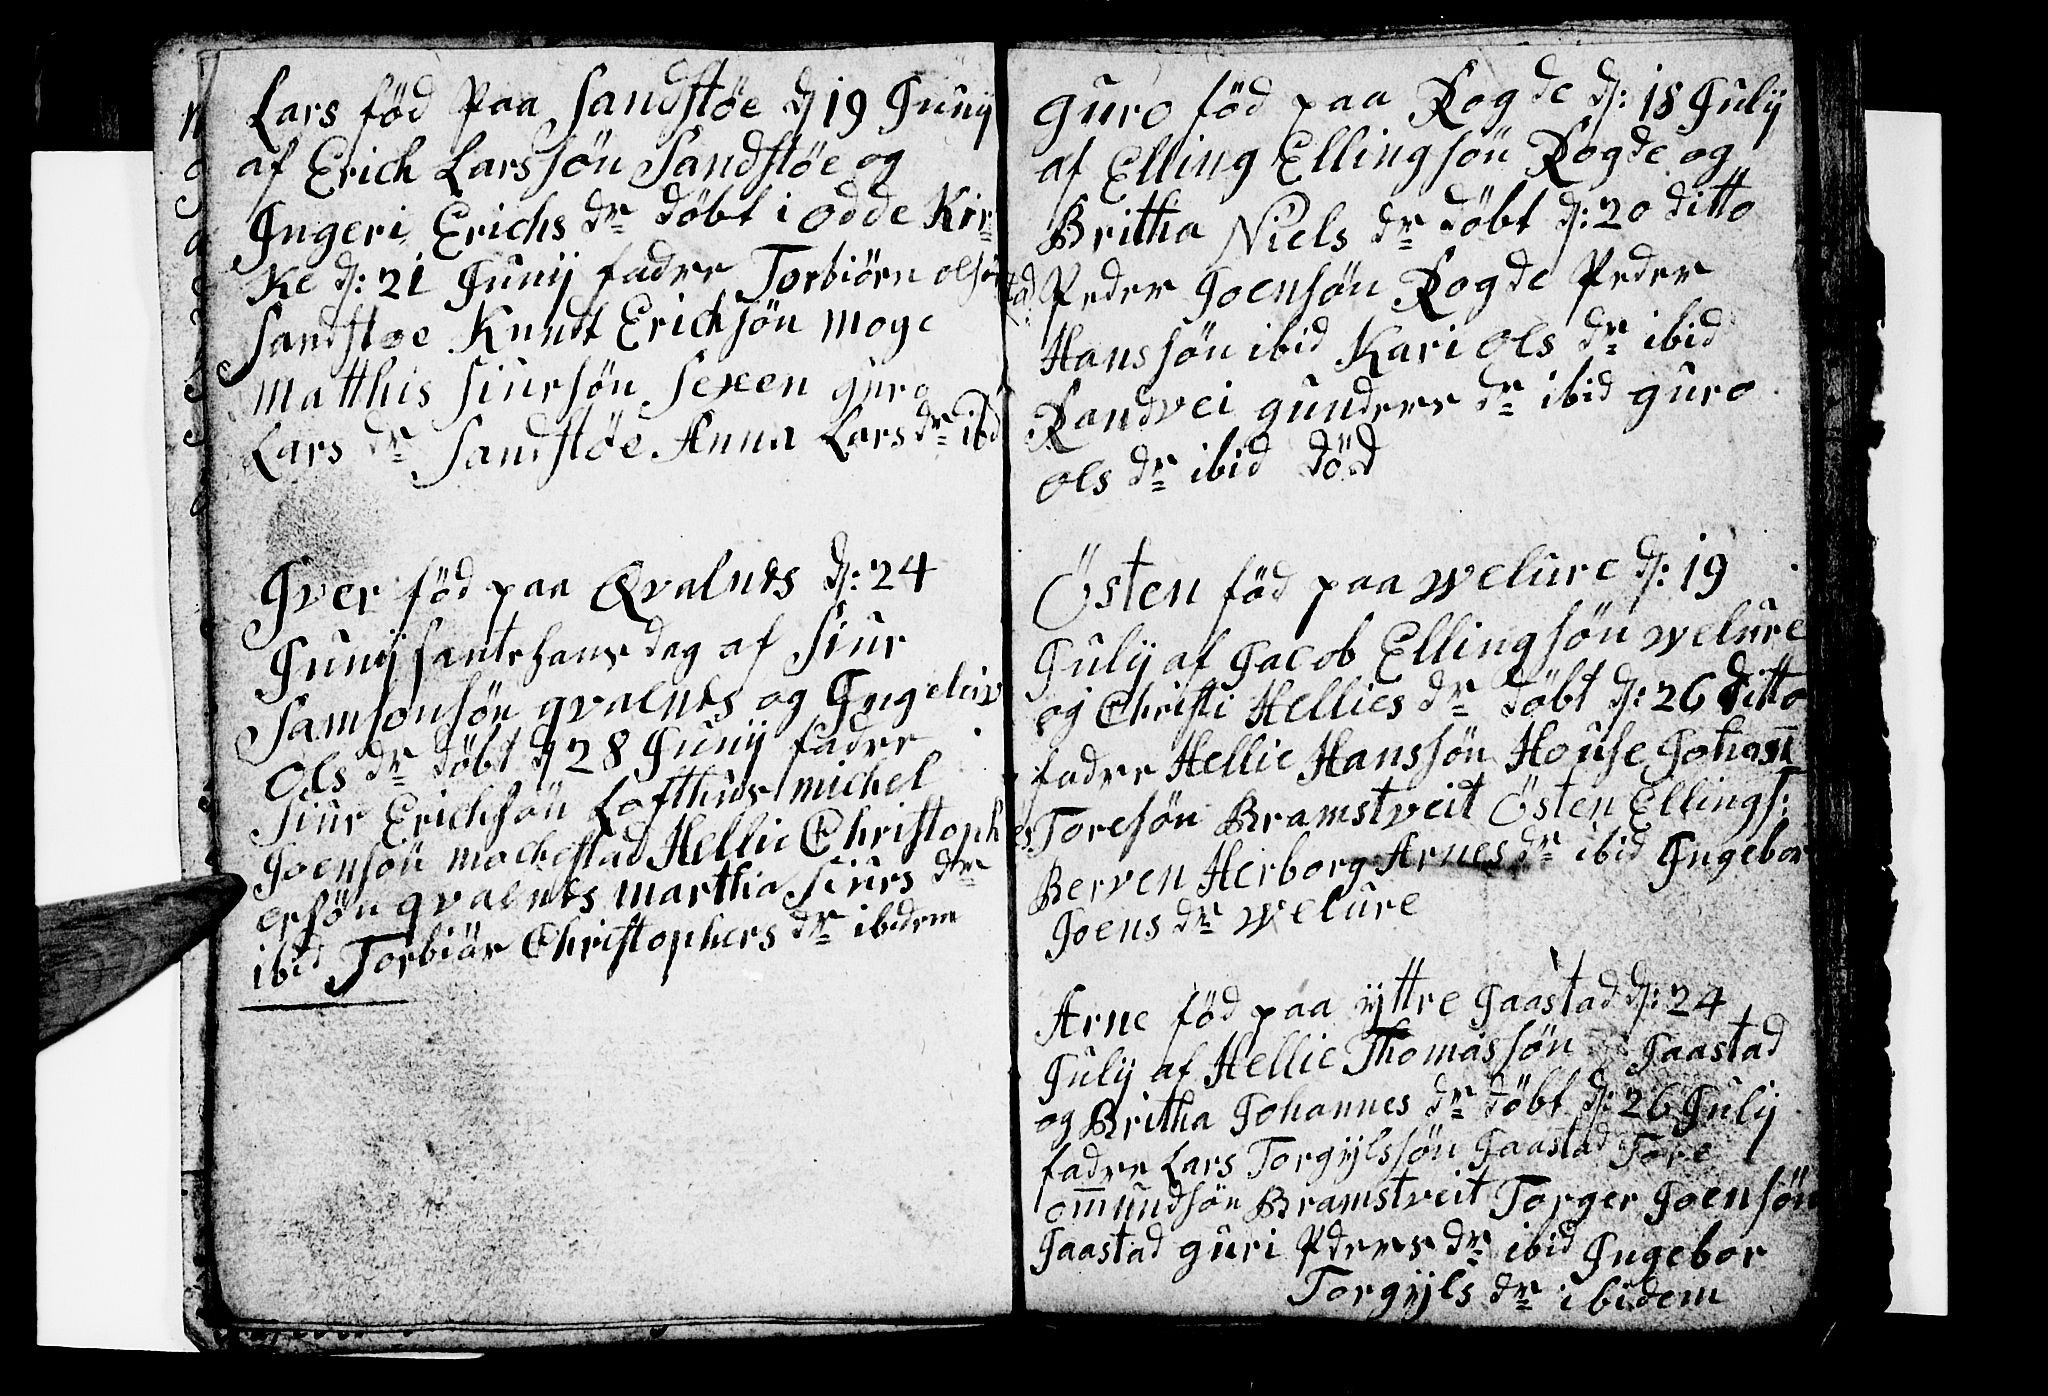 Lars fød Paa Sandstøe d 19 Junij
af Erich Larssøn Sandstøe og
Ingeri Erichs dr döbt i odde Kir
ke d: 21 Junij fadre Torbiörn olsøn
Sandstøe Knudt Erichsøn Moge
Matthis Siursøn Sexen guro
Lars dr Sandstøe Anna Lars dr ibd
Iver fød paa Qvalnes d: 24
Junij sante hans dag af Siur
Samsonsøn qvalnes og Ingeleiv
Ols dr döbt d 28 Junij fadre
Siur Erichsøn Lofthus michel
Joensøn mochestad Hellie Christoph
ersøn qvalnes martha Siurs dr
ibid Torbiör Christophers dr ibidem
guro fød paa Rogde d: 18 Julij
af Elling Ellingsøn Rogde og
Britha Niels dr döbt d: 20 ditto
Peder Joensøn Rogde Peder
Hanssøn ibid Kari Ols dr ibid
Randvei gunders dr ibid guro
ols dr ibid död
Östen fød paa welure d: 19
Julij af Jacob Ellingsøn welure
og Christi Hellies dr döbt d: 26 ditto
fadre Hellie Hanssøn House Johañ
Toresøn Bramstveit Östen Ellings:
Berven Herborg Arnes dr ibid Ingebor
Joens dr welure
Arne fød paa ÿttre Jaastad d: 24
Julij af Hellie Thomassøn Jaastad
og Britha Johannes dr döbt d: 26 Julij
fadre Lars Torgÿlssøn Jaastad Tore
om̄undsøn Bramstveit Torger Joensøn
Jaastad guri Pders dr ibid Ingebor
Torgÿls dr ibidem